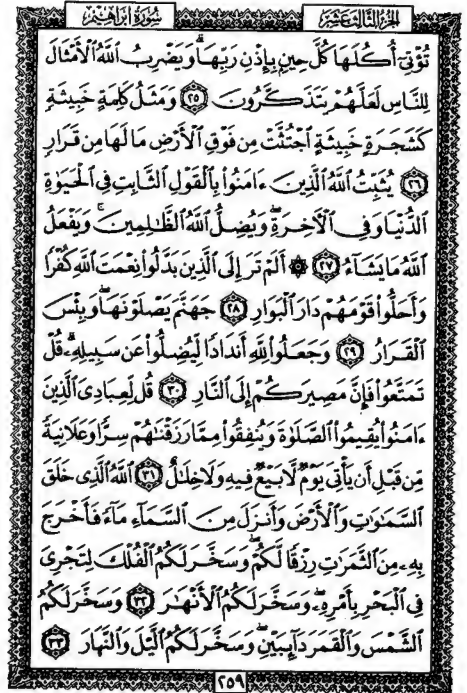 سُورَةُ إِبْرَاهِيمَ الجُزْءُ الثَّالِثُ عَشَرَ
تُؤْتِيٓ أُكُلَهَا كُلَّ حِينٍۭ بِإِذْنِ رَبِّهَاۗ وَيَضْرِبُ ٱللَّهُ ٱلْأَمْثَالَ
لِلنَّاسِ لَعَلَّهُمْ يَتَذَكَّرُونَ ٢٥ وَمَثَلُ كَلِمَةٍ خَبِيثَةٍ
كَشَجَرَةٍ خَبِيثَةٍ ٱجْتُثَّتْ مِن فَوْقِ ٱلْأَرْضِ مَا لَهَا مِن قَرَارٍ
٢٦ يُثَبِّتُ ٱللَّهُ ٱلَّذِينَ ءَامَنُوا۟ بِٱلْقَوْلِ ٱلثَّابِتِ فِى ٱلْحَيَوٰةِ
ٱلدُّنْيَا وَفِى ٱلْءَاخِرَةِۖ وَيُضِلُّ ٱللَّهُ ٱلظَّٰلِمِينَۚ وَيَفْعَلُ
ٱللَّهُ مَا يَشَآءُ ٢٧ ۞ أَلَمْ تَرَ إِلَى ٱلَّذِينَ بَدَّلُوا۟ نِعْمَتَ ٱللَّهِ كُفْرًا
وَأَحَلُّوا۟ قَوْمَهُمْ دَارَ ٱلْبَوَارِ ٢٨ جَهَنَّمَ يَصْلَوْنَهَاۖ وَبِئْسَ
ٱلْقَرَارُ ٢٩ وَجَعَلُوا۟ لِلَّهِ أَندَادًا لِّيُضِلُّوا۟ عَن سَبِيلِهِۦۗ قُلْ
تَمَتَّعُوا۟ فَإِنَّ مَصِيرَكُمْ إِلَى ٱلنَّارِ ٣٠ قُل لِّعِبَادِىَ ٱلَّذِينَ
ءَامَنُوا۟ يُقِيمُوا۟ ٱلصَّلَوٰةَ وَيُنفِقُوا۟ مِمَّا رَزَقْنَٰهُمْ سِرًّا وَعَلَانِيَةً
مِّن قَبْلِ أَن يَأْتِىَ يَوْمٌ لَّا بَيْعٌ فِيهِ وَلَا خِلَٰلٌ ٣١ ٱللَّهُ ٱلَّذِى خَلَقَ
ٱلسَّمَٰوَٰتِ وَٱلْأَرْضَ وَأَنزَلَ مِنَ ٱلسَّمَآءِ مَآءً فَأَخْرَجَ
بِهِۦ مِنَ ٱلثَّمَرَٰتِ رِزْقًا لَّكُمْۖ وَسَخَّرَ لَكُمُ ٱلْفُلْكَ لِتَجْرِىَ
فِى ٱلْبَحْرِ بِأَمْرِهِۦۖ وَسَخَّرَ لَكُمُ ٱلْأَنْهَٰرَ ٣٢ وَسَخَّرَ لَكُمُ
ٱلشَّمْسَ وَٱلْقَمَرَ دَآئِبَيْنِۖ وَسَخَّرَ لَكُمُ ٱلَّيْلَ وَٱلنَّهَارَ ٣٣
٢٥٩